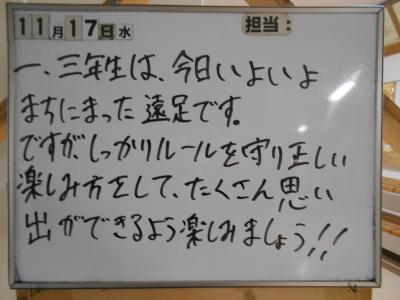 11月17日水 担当:
一、三年生は、今日いよいよ
まちにまった遠足です。
ですが、しっかりルールを守り正しい
楽しみ方をして、たくさん思い
出ができるよう楽しみましょう!!